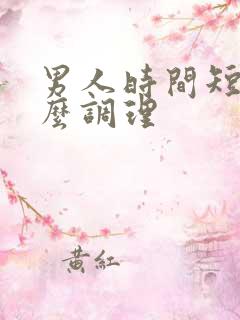 男人時間短
麼調理
黃紅